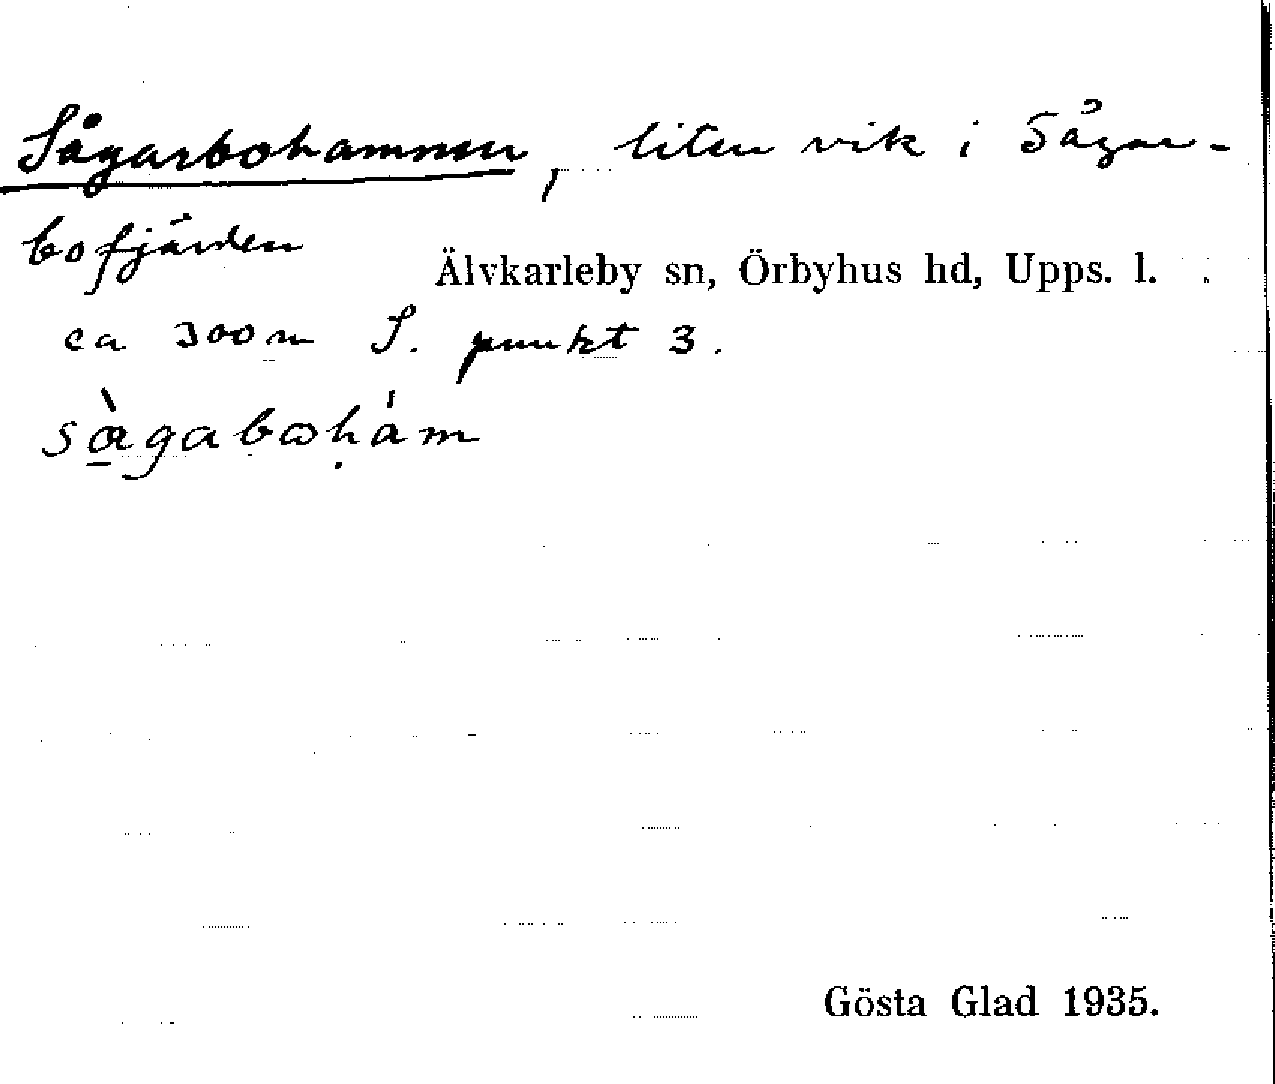 Sågarbohamnen, liten vik i Sågar-
bofjärden
Älvkarleby sn, Örbyhus hd, Upps. l.
ca 300 m S. punkt 3.
Gösta Glad 1935.